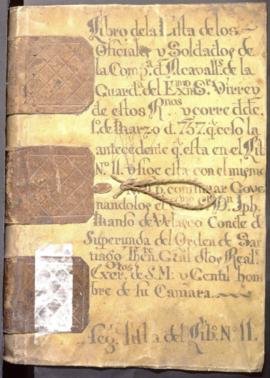 Libro de la Lista de los
Oficiales y Soldados de
la Comp.ª d. Alcavall.s de la
Guard.ª del Ex.mo S.r Virrey
de estos R.nos y corre d.de
1.º de Marzo d. 757. q. cesó la
antecedente q. está en el Lib.
N.º 11. y hoy esta con el mismo
continuar Gove
nandolos el D. Jph.
Manso de Velasco Conde de
Superunda del Orden de San
tiago Then.te Gral. d los Real.s
Exer.tos de S. M. y Gentil hom
bre de su Camara.
Seg.ª Lista del Lib.º N.º 11.